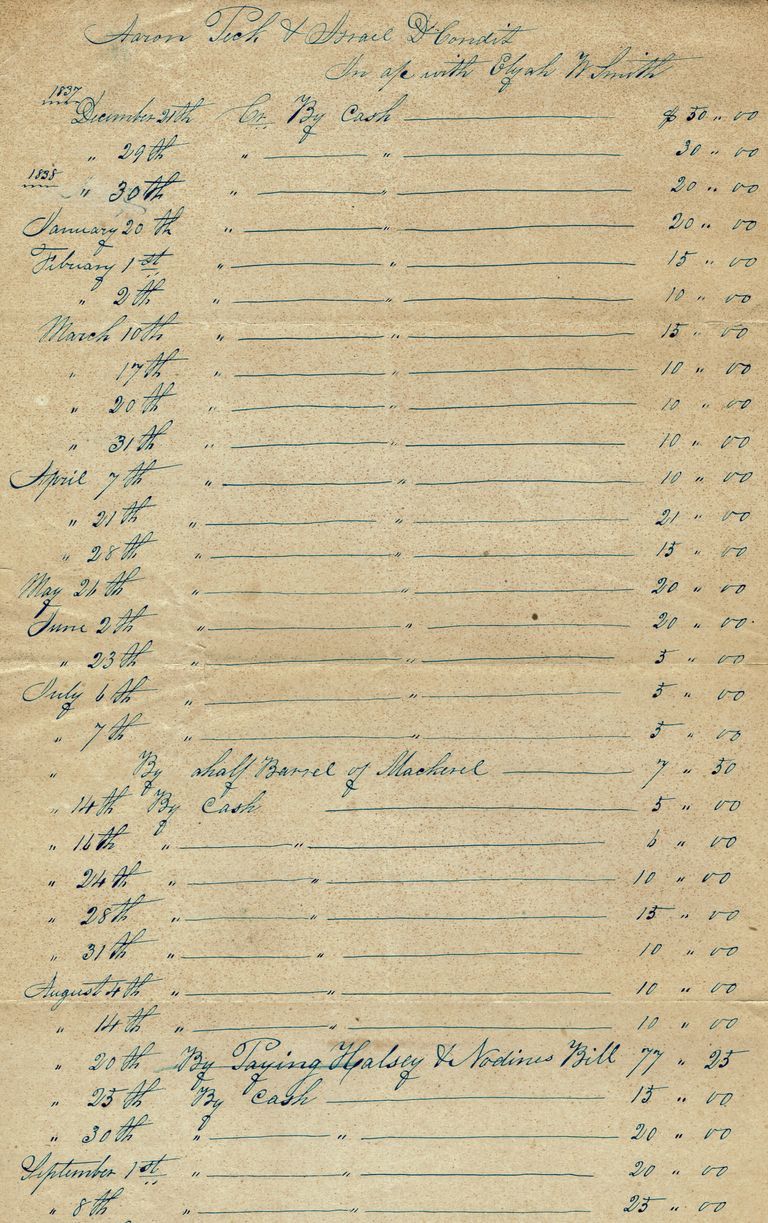 Aaron Peck & Israel D Condit
In a/c with Elijah W Smith
1837
December 21th Cr. By Cash $ 50 " 00
" 29th " " 30 " 00
1838
" 30th " " 20 " 00
January 20th " " 20 " 00
Febuary 1st " " 15 " 00
" 2th " " 10 " 00
March 10th " " 15 " 00
" 17th " " 10 " 00
" 20th " " 10 " 00
" 31th " " 10 " 00
April 7th " " 10 " 00
" 21th " " 21 " 00
" 28th " " 15 " 00
May 26th " " 20 " 00
June 2th " " 20 " 00
" 23th " " 5 " 00
July 6th " " 5 " 00
" 7th " " 5 " 00
" By a half Barrel of Mackerel 7 " 50
" 14th By Cash 5 " 00
" 16th " " 6 " 00
" 24th " " 10 " 00
" 28th " " 15 " 00
" 31th " " 10 " 00
August 4th " " 10 " 00
" 14th " " 10 " 00
" 20th By Paying Halsey & Nodines Bill 77 " 25
" 25th By Cash 15 " 00
" 30th " " 20 " 00
September 1st " " 20 " 00
" 8th " " 25 " 00